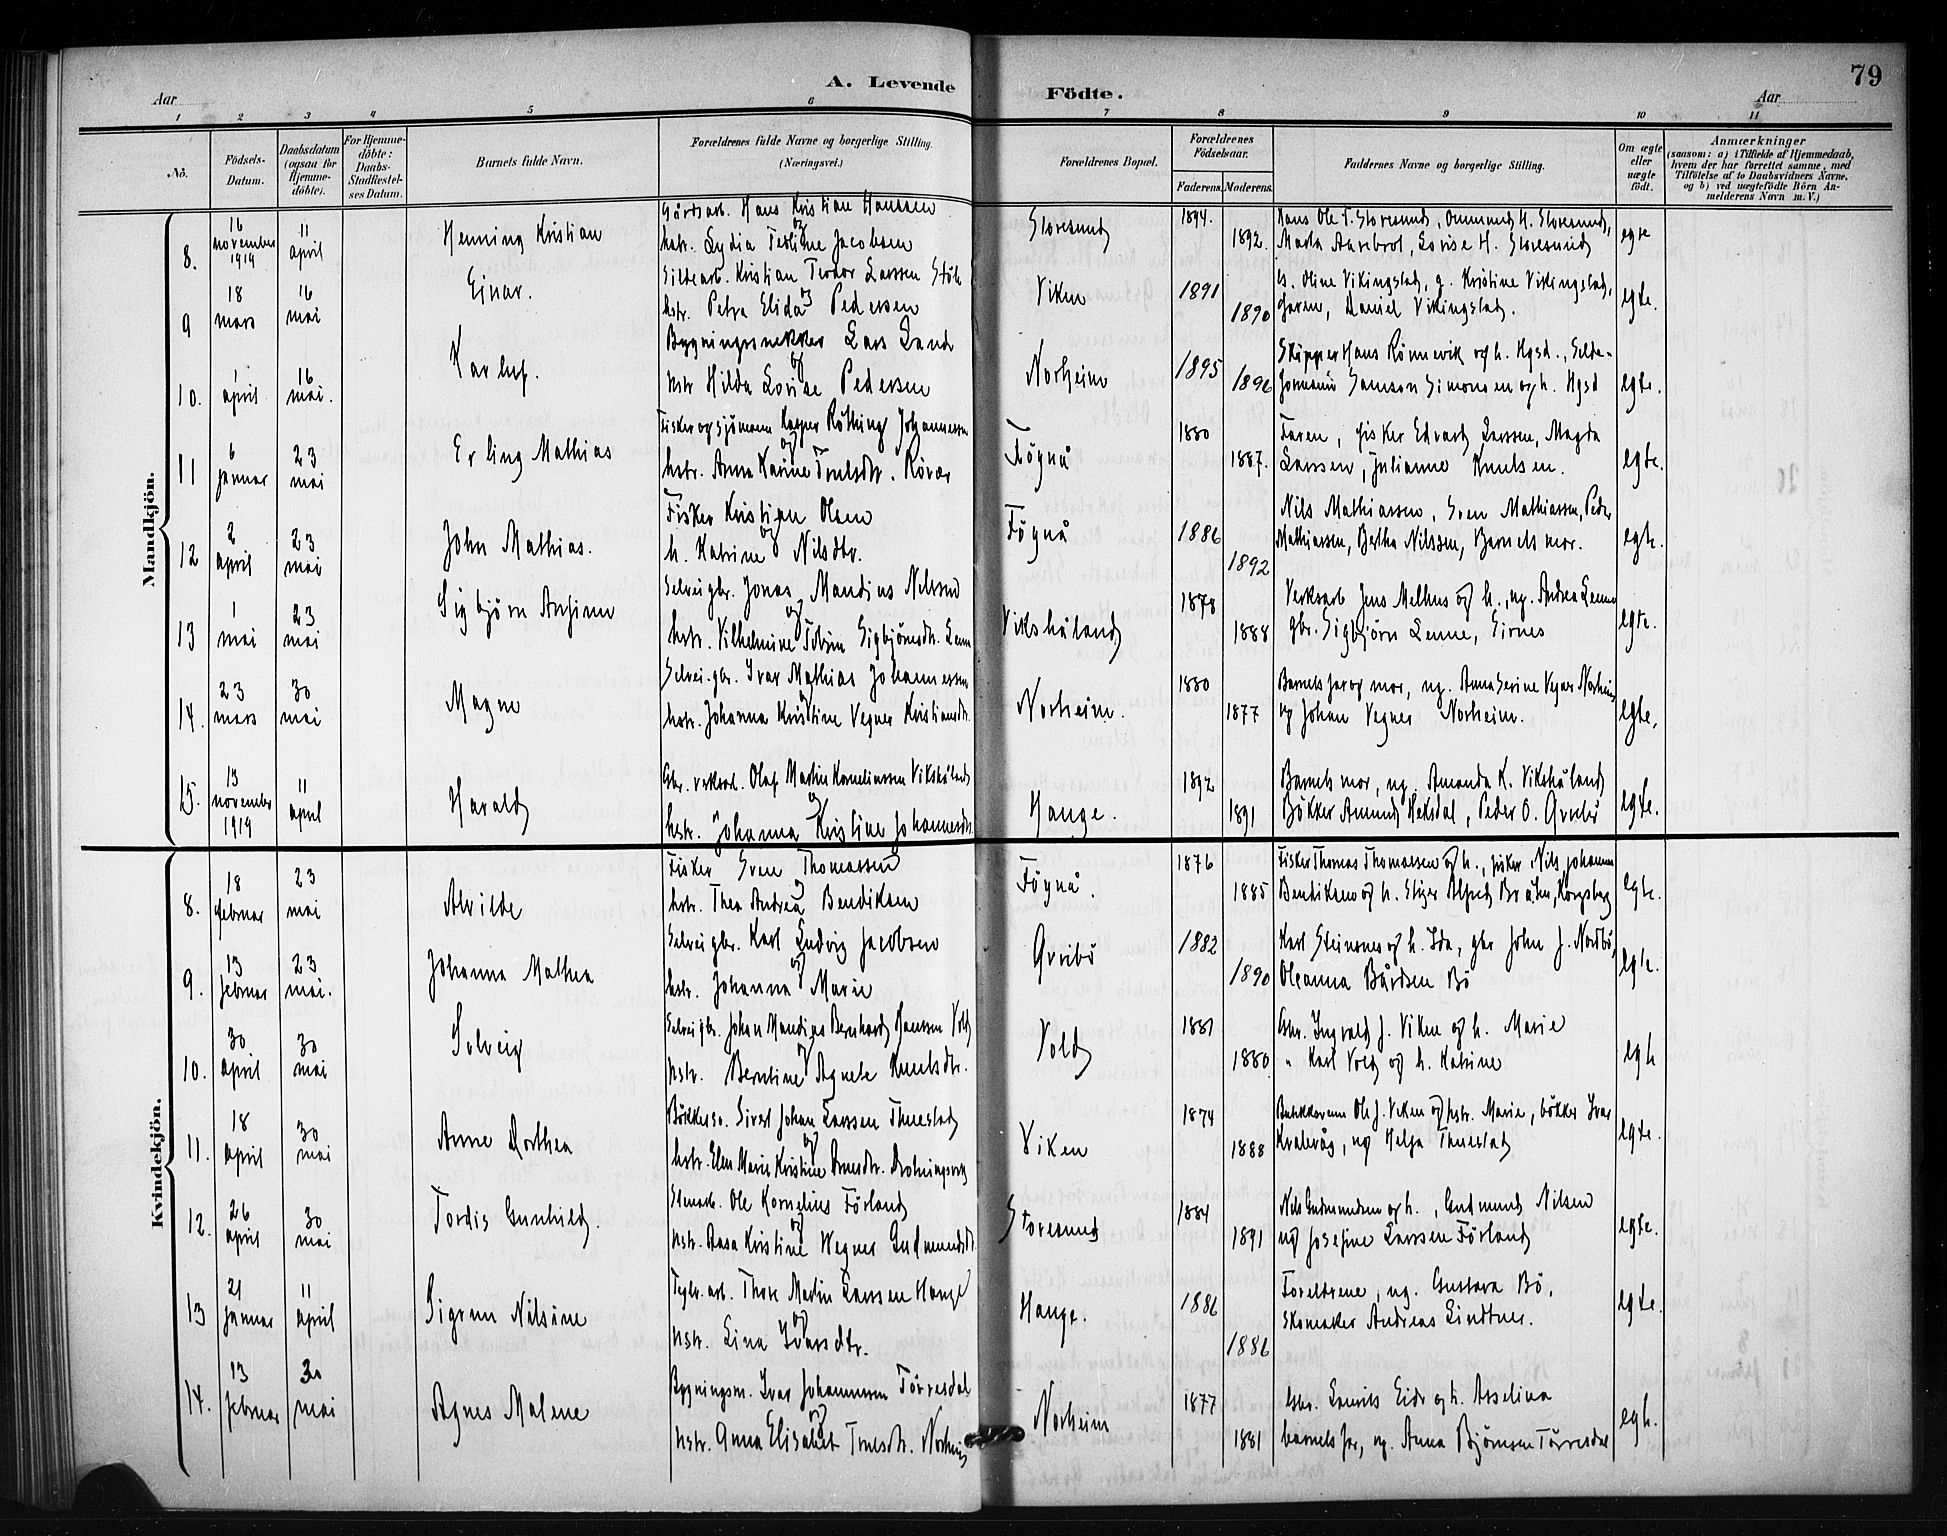 79
A. Levende Födte.
Aar
Aar
1 2 3 4 5 6 7 8 9 10 11
No.
Födsels-Datum.
Daabsdatum (ogsaa for Hjemme-döbte).
For Hjemme-döbte: Daabs-Stadfestel-ses Datum.
Barnets fulde Navn.
Forældrenes fulde Navne og borgerlige Stilling. (Næringsvei.)
Forældrenes Bopæl.
Forældrenes Födselsaar.
Faderens. Moderens.
Faddernes Navne og borgerlige Stilling.
Om ægte eller uægte födt.
Anmærkninger
(saasom: a) i Tilfælde af Hjemmedaab, hvem der har forrettet samme, med Tilföielse af to Daabsvidners Navne, og b) ved uægtefödte Börn An-melderens Navn m. V.)
Mandkjön.
8. 16 november 1919
11 april
Henning Kristian
Gårdsarb. Hans Kristian Hanssen
og
hstr. Lydia Jacobsen
Storesund
1894.
1892.
Hans Ole T. Storesund, H. Storesund,
Lovise H. Storesund
egte
9 18 mars
16 mai
Einar.
Sildearb. Kristian Teodor Larssen
og
hstr. Petra Elida Pedersen
Viken
1891
1890
Oline Vikingstad, g. Kristine Vikingstad,
Faren, Daniel Vikingstad.
egte.
10. 1 april
16 mai.
Karluf.
Bygningssnekker Lars Sand
og
hstr Hilda Lovise Pedersen
Norheim
1895
1896
Skipper Hans Rönnevik og h. Hgsd., Silde-
formann Samson Simonsen og h. Hgsd
egte.
11 6 januar
23 mai
Erling Mathias
Fisker og sjömann Kasper Röthing Johannessen
og
hstr. Anna Karine Truelsdtr. Rövær
Föynå
1880
1887.
Faren, fisker Edvard Larssen, Magda
Larssen, Julianne Knutsen.
egte.
12 2 april
23 mai
John Mathias.
Fisker Kristian Olsen
og
h. Katrine Nilsdtr.
Föynå
1886
1892
Nils Mathiassen, Sven Mathiassen, Peder
Mathiassen, Bertha Nilssen, Barnets mor.
egte.
13 1 mai
23 mai
Sigbjörn Ansinn
Selveigbr. Jonas Mandius Nilssen
og
hstr. Vilhelmine Tobine Sigbjörnsdtr. Lenne
Vikshåland
1878
1888
Verksarb Jens Melhus og h., ug. Andrea Lenne
gbr. Sigbjörn Lenne, Sirnes
egte.
14. 23 mars
30 mai
Magne
Selvei.gbr. Ivar Mathias Johannessen
og
hstr. Johanna Kristine Vegner Kristiansdtr.
Norheim.
1880
1877
Barnets far og mor, ug. Anna Serine Vegner Norheim
og Johan Vegner Norheim.
egte,
15. 13 november 1919
11 april
Harald
Gbr. verksarb. Olaf Martin Korneliussen Vikshåland
og
hstr. Johanna Kristine Johannesdtr.
Hauge.
1892
1891
Barnets mor, ug. Amanda K. Vikshåland
Bökker Amund Heksdal, Peder O. Qvalö
egte.
Kvindekjön.
8. 18 februar
23 mai
Alvilde
Fisker Sven Thomassen
og
hstr. Thea Andrea Bendiksen
Föynå.
1876
1885
Fisker Thomas Thomassen og h., fisker Nils Johannes
Bendiksen og h. Stiger Alfred Kongsberg
egte.
9. 13 februar
23 mai.
Johanna Mathea
Selveigbr. Karl Ludvig Jacobsen
og
hstr. Johanna Marie
1882
1890
Karl Steinsnes og h. Ida, gbr John J. Nordbö,
Oleanna Bårdsen Bö
egte.
10. 30 april
30 mai
Solveig
Selveigbr. Johan Mandius Bernhard Hanssen Vold
og
hstr. Berntine Agnete Knutsdtr.
Vold
1881
1880.
Gbr. Ingvald J. Viken og h. Marie
" Karl Vold og h. Katrine
egte
11. 18 april
30 mai
Anne Dorthea
Bökkersv. Sivert Johan Larssen Thuestad
og
hstr. Elen Marie Kristine Arnesdtr.
Viken
1874
1888
Ole J. Viken og hstr. Marie, bökker Ivar
Kvalevåg, ug Helga Thuestad
egte.
12. 26 april
30 mai
Tordis Gunhild.
Ole Kornelius Förland
og
hstr. Aasa Kristine Wegner Gudmundsdtr
Storesund
1884
1891
Nils Gudmundsen og h., Gudmund Nilsen
ug Josefine Larssen Förland
egte.
13 21 januar
11 april
Sigrun Nilsine
Teglv.arb. Thore Martin Larssen Hauge
og
hstr. Lina Ivarsdtr.
Hauge.
1886
1886
Foreldrene, ug. Gustava Bö,
Skomaker Andreas Lindtner.
egte.
14. 13 februar
30 mai
Agnes Malene
Bygningsm. Ivar Johannessen Törresdal
og
hstr. Anna Elisabet Truelsdtr. Norheim
Norheim
1877
1881
Gbr. Laurits Eide og h. Asseline
barnets far, ug. Anna Björnsen Törresdal
egte.